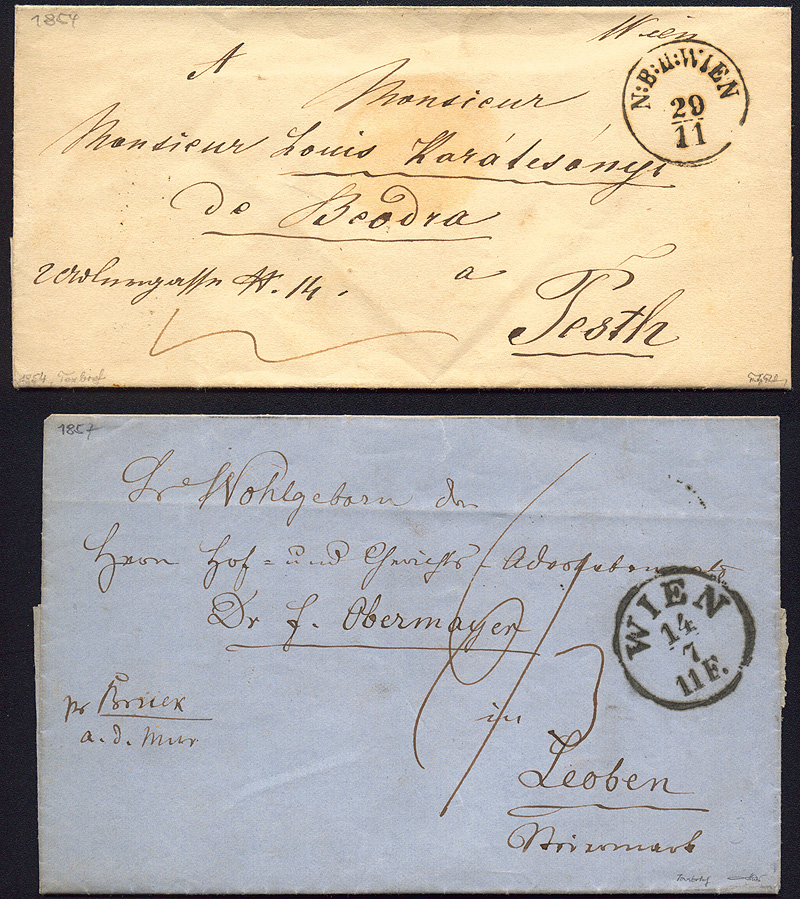 1854
Wien
A
N:B:u:WIEN
29
11
Monsieur
Monsieur Louis Karátsónyi
de Beodra
N. 14.
a
Pesth
1854 Taxbrief
1857
Sr Wohlgeborn den
Herrn Hof- und Gerichts-Advokaten
Dr. F. Obermayer
WIEN
14
7
11 F.
pr Bruck
a. d. Mur
in
Leoben
Steiermark